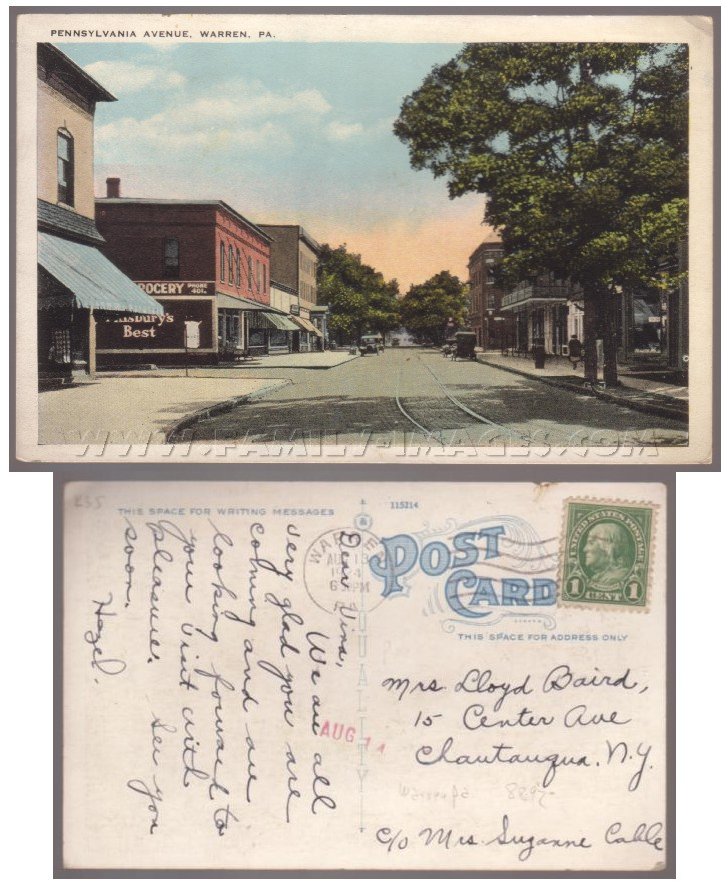 PENNSYLVANIA AVENUE, WARREN, PA.
GROCERY PHONE 401.
Pillsbury's
Best
WWW.FAMILY-IMAGES.COM
235
THIS SPACE FOR WRITING MESSAGES
115214
WARREN
AUG 13
6 PM
PA.
POST
CARD
UNITED STATES POSTAGE
1 CENT 1
THIS SPACE FOR ADDRESS ONLY
QUALITY
AUG 14
Dear
We are all
very glad you are
coming and are
looking forward to
your visit with
pleasure. See you
soon.
Hazel.
Mrs. Lloyd Baird,
15 Center Ave
Chautauqua, N.Y.
Warren Pa
c/o Mrs Suzanne Cable